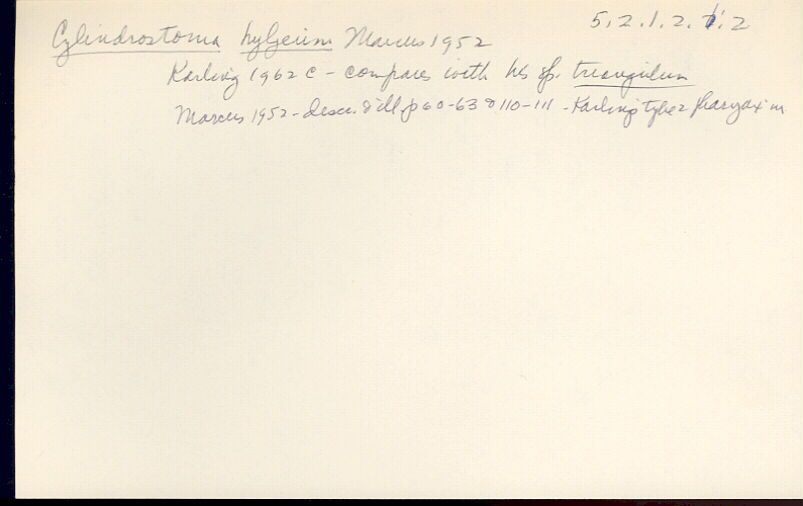 5.2.1.2.1.2
Cylindrostoma hyljerim Marcus 1952
Karling 1962 c - compares with his sp. triangulum
Marcus 1952 - descr. & ill. p 60-63 & 110-111 - Karling's type 2 pharynx in